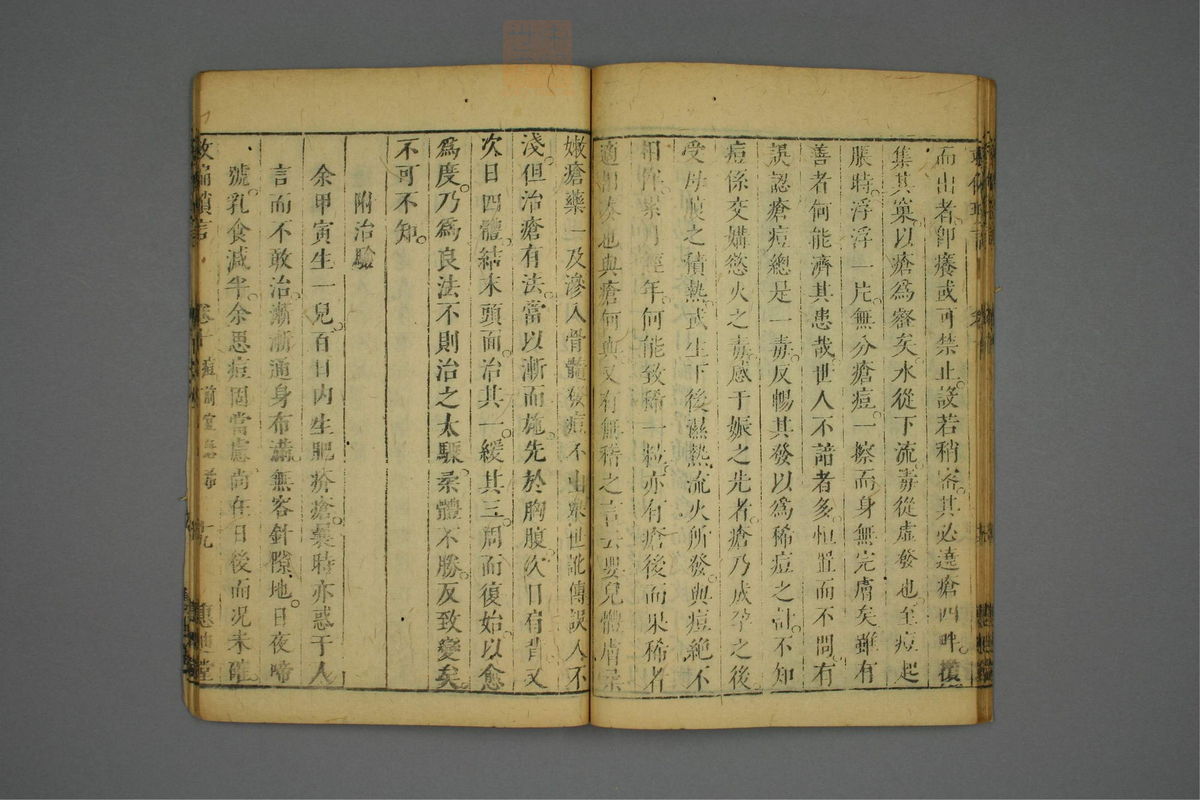 而出者卽癢或可禁止設若稍密其必遶瘡四畔攢
集其窠以瘡爲窩矣水從下流毒從虛發也至痘起
脹時浮浮一片無分瘡痘一擦而身無完膚矣雖有
善者何能濟其患哉世人不諳者多恒置而不問有
誤認瘡痘總是一毒反暢其發以爲稀痘之計不知
痘係交媾慾火之毒感于娠之先者瘡乃成孕之後
受母腹之積熱或生下後濕熱流火所發與痘絶不
相伴累月經年何能致稀一粒亦有瘡後而果稀者
適相湊也與瘡何與又有無稽之言云嬰兒體膚柔
嫩瘡藥一及滲入骨髓發痘不出衆世訛傳誤人不
淺但治瘡有法當以漸而施先於胸腹次日肩背又
次日四體結末頭面治其一緩其三周而復始以愈
爲度乃爲良法不則治之太驟柔體不勝反致變矣
不可不知
附治驗
余甲寅生一兒百日內生肥疥瘡曩時亦惑于人
言而不敢治漸漸遍身布滿無容針隙地日夜啼
號乳食減半余思痘固當慮尚在日後而况未確
救偏瑣言 卷十 痘前 十九 惠迪堂